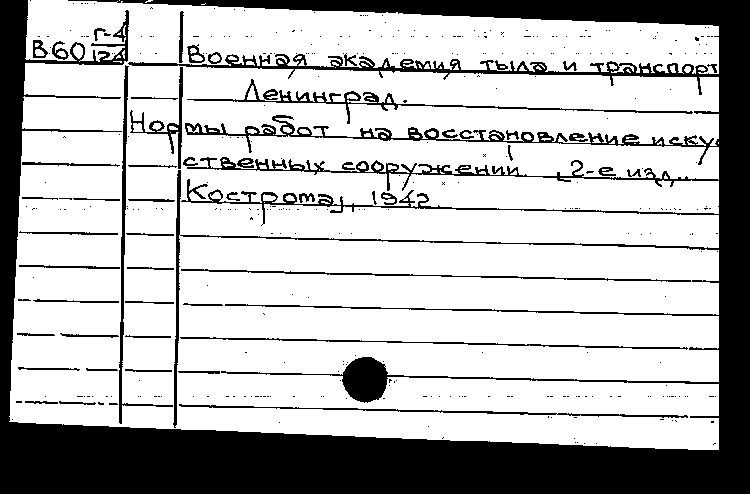 В60 г-4/124 Военная академия тыла и транспорт
Ленинград.
Нормы работ на восстановление иску
ственных сооружении. [2-е изд..
Кострома], 1942.